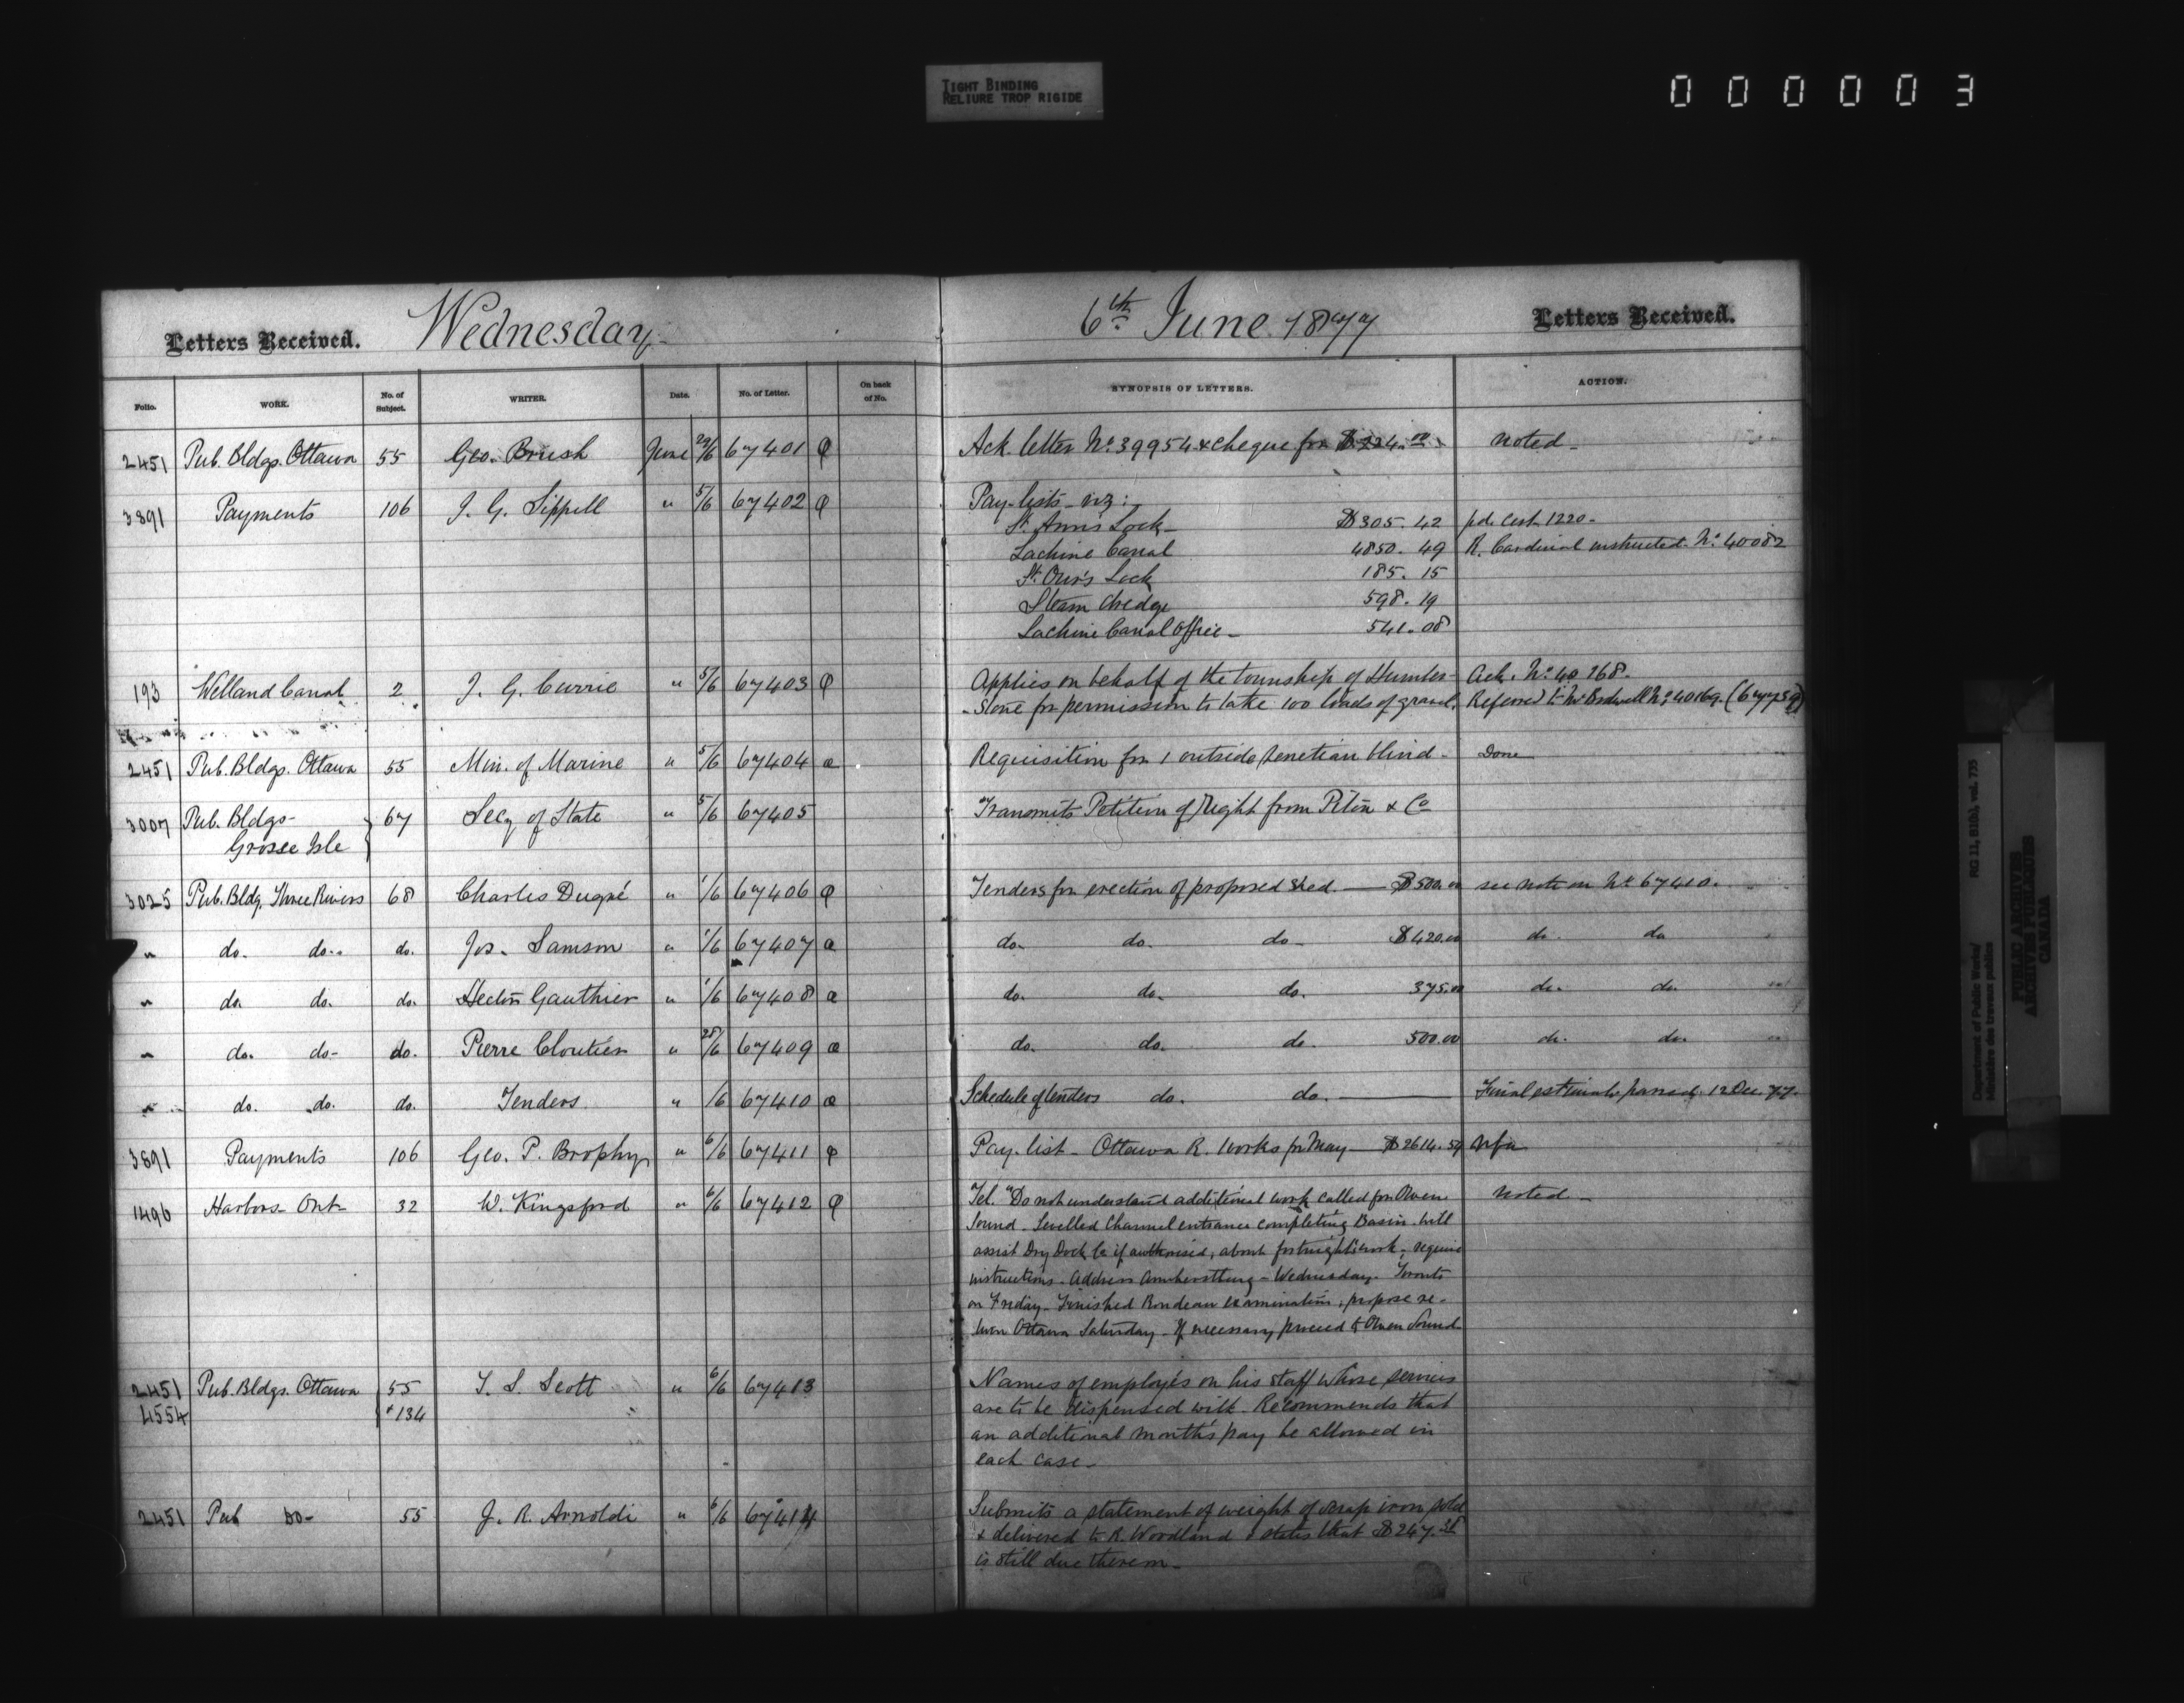 TIGHT BINDING
RELIURE TROP RIGIDE
000003
Letters Received. Wednesday 6th June 1877 Letters Received.
Folio. WORK. No. of Subject. WRITER. Date. No. of Letter. On back of No. SYNOPSIS OF LETTERS. ACTION.
2451 Pub. Bldgs. Ottawa 55 Geo. Brush June 29/6 67401 Ack. letter No. 39954 & cheque for $224.00 Noted
3891 Payments 106 J. G. Sippell " 5/6 67402 Pay-lists viz:
St. Ann's Lock $305.42 pd. Cert. 1220
Lachine Canal 4850.49 R. Cardinal instructed. No. 40082
St. Our's Lock 185.15
Steam dredge 598.19
Lachine Canal Office 541.08
193 Welland Canal 2 J. G. Currie " 5/6 67403 Applies on behalf of the township of Humber- Ack. No. 40168.
-stone for permission to take 100 loads of gravel. Referred to Mr Bodwell No. 40169. (67759)
2451 Pub. Bldgs. Ottawa 55 Min. of Marine " 5/6 67404 a Requisition for 1 outside Venetian blind Done
3007 Pub. Bldgs- 67 Secy of State " 5/6 67405 Transmits Petition of Right from Piton & Co
Grosse Isle
3025 Pub. Bldg. Three Rivers 68 Charles Dugré " 1/6 67406 Tenders for erection of proposed shed. $500.00 see note on No. 67410.
" do. do. do. Jos. Samson " 1/6 67407 a do. do. do. $420.00 do. do
" do. do. do. Hector Gauthier " 1/6 67408 a do. do. do. 375.00 do. do.
" do. do- do. Pierre Cloutier " 28/6 67409 a do. do. do. 500.00 do. do.
" do. do. do. Tenders " /6 67410 a Schedule of tenders do. do. Final estimate passed. 12 Dec. 77.
3891 Payments 106 Geo. P. Brophy " 6/6 67411 Pay-list - Ottawa R. works for May $2614.54
1496 Harbors Ont 32 W. Kingsford " 6/6 67412 Tel. "Do not understand additional work called for Owen Noted
Sound. Levelled Channel entrance completing Basin. will
assist Dry Dock Co if authorised, about fortnight's work, require
instructions. Address Amherstburg - Wednesday. Toronto
on Friday. Finished Rondeau examination, propose re-
turn Ottawa Saturday. If necessary proceed to Owen Sound
2451 Pub. Bldgs. Ottawa 55 T. S. Scott " 6/6 67413 Names of employés on his staff whose services
4554 & 134 are to be dispensed with. Recommends that
an additional month's pay be allowed in
each case.
2451 Pub Do- 55 J. R. Arnoldi " 6/6 67414 Submits a statement of weight of scrap iron sold
& delivered to R. Woodland & states that $247.38
is still due thereon.
Department of Public Works/
Ministère des travaux publics
RG 11, B1(b), vol. 735
PUBLIC ARCHIVES
ARCHIVES PUBLIQUES
CANADA